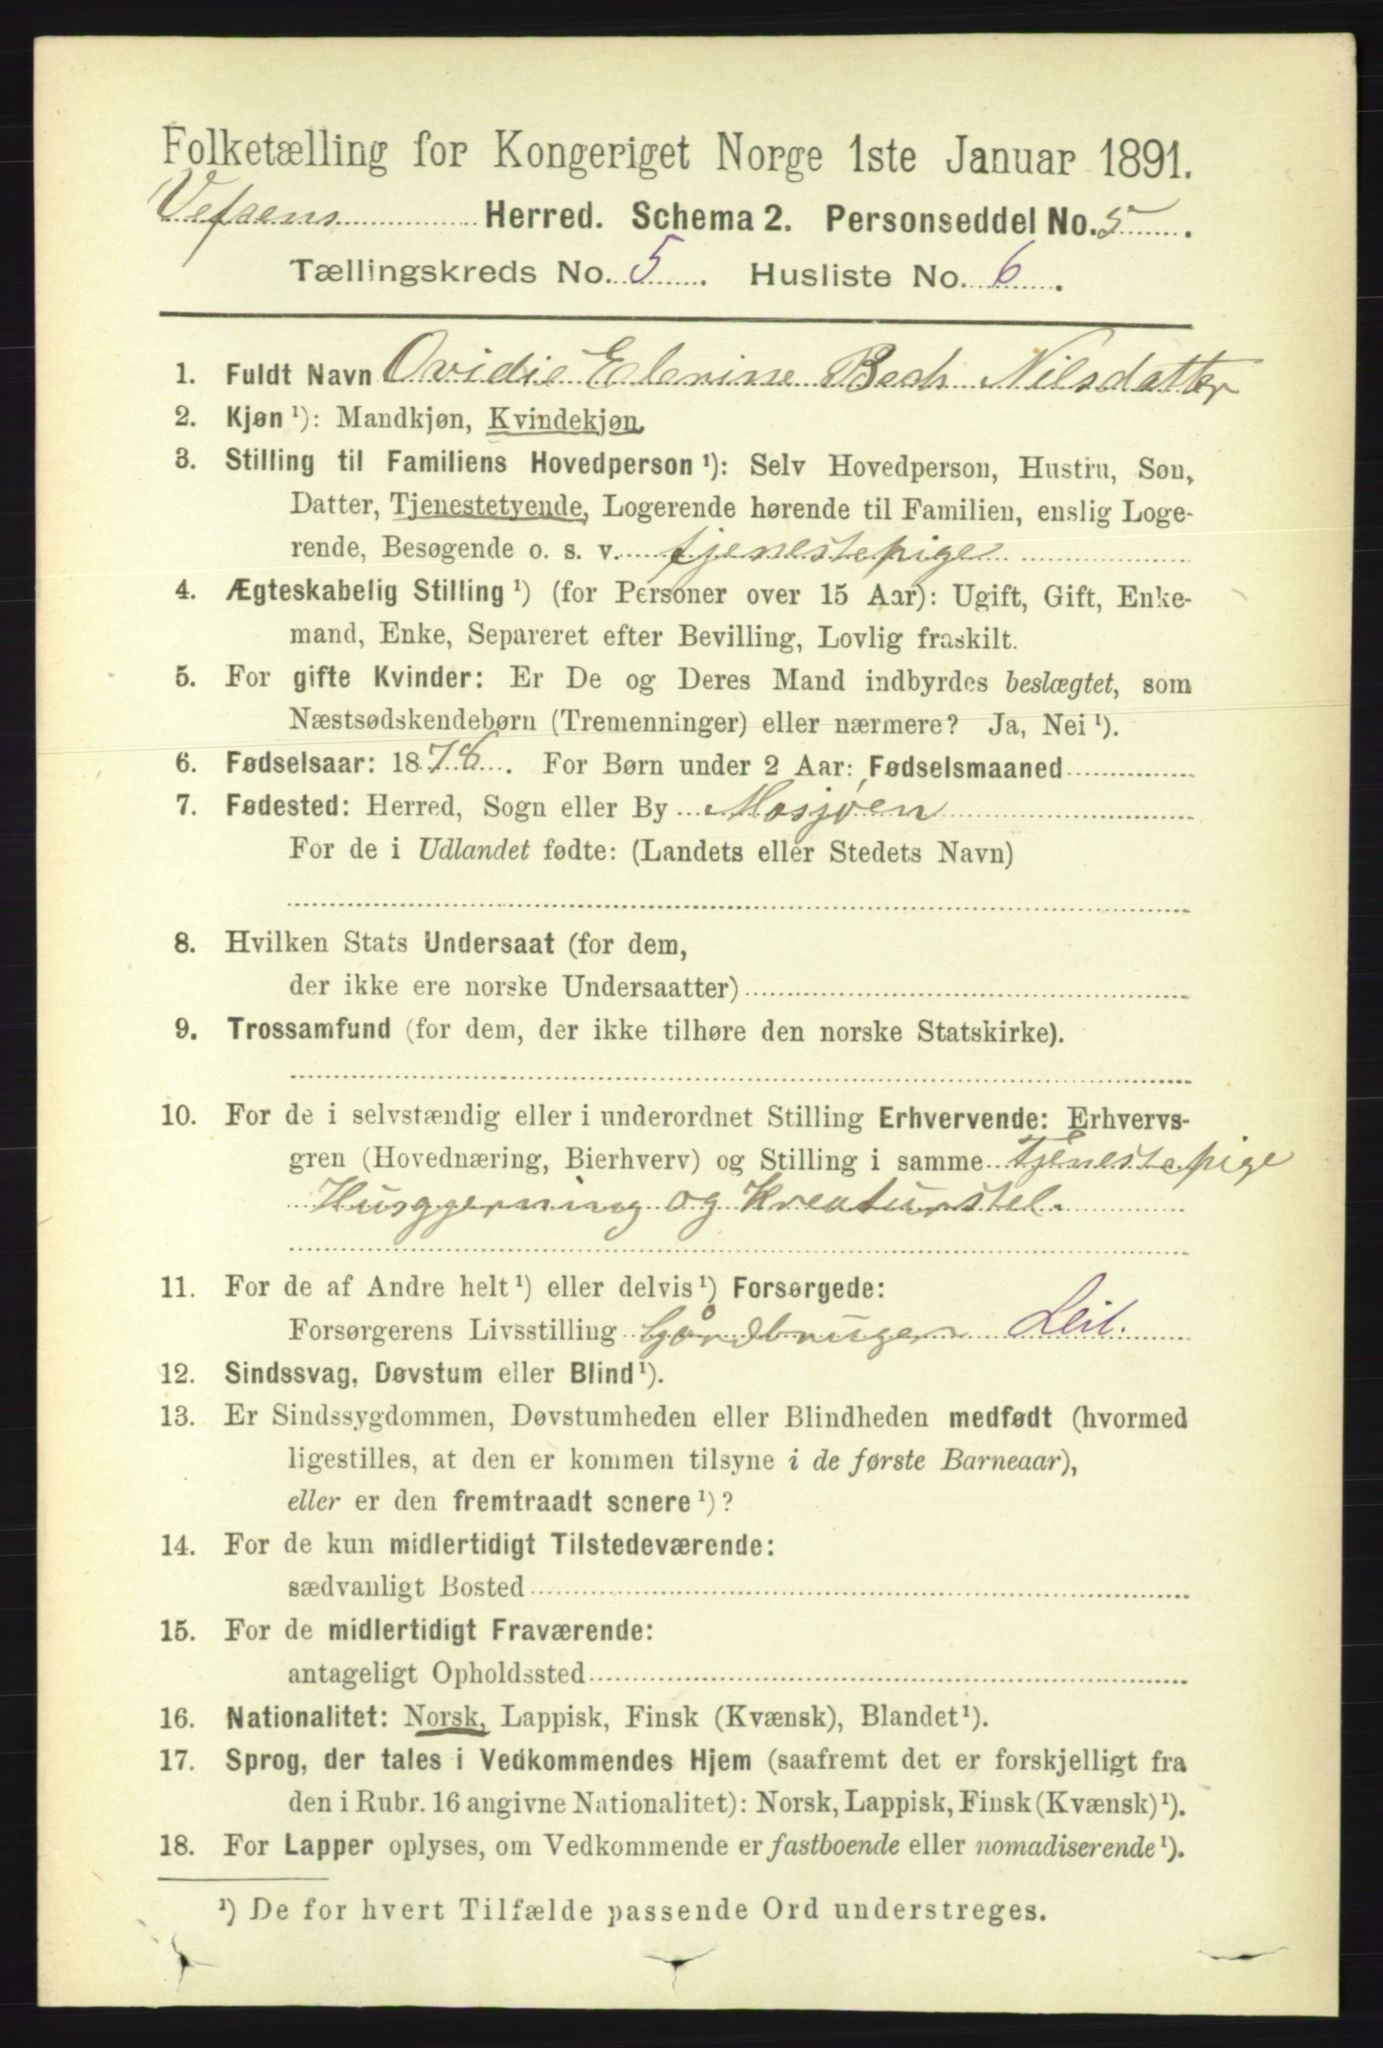 Folketælling for Kongeriget Norge 1ste Januar 1891.
Vefsens Herred. Schema 2. Personseddel No. 5.
Tællingskreds No. 5. Husliste No. 6.
1. Fuldt Navn Ovidie Elevine Bech Nilsdatter
2. Kjøn ¹): Mandkjøn, Kvindekjøn.
3. Stilling til Familiens Hovedperson ¹): Selv Hovedperson, Hustru, Søn,
Datter, Tjenestetyende, Logerende hørende til Familien, enslig Loge-
rende, Besøgende o. s. v. tjenestepige
4. Ægteskabelig Stilling ¹) (for Personer over 15 Aar): Ugift, Gift, Enke-
mand, Enke, Separeret efter Bevilling, Lovlig fraskilt.
5. For gifte Kvinder: Er De og Deres Mand indbyrdes beslægtet, som
Næstsødskendebørn (Tremenninger) eller nærmere? Ja, Nei ¹).
6. Fødselsaar: 1878. For Børn under 2 Aar: Fødselsmaaned
7. Fødested: Herred, Sogn eller By Mosjøen
For de i Udlandet fødte: (Landets eller Stedets Navn)
8. Hvilken Stats Undersaat (for dem,
der ikke ere norske Undersaatter)
9. Trossamfund (for dem, der ikke tilhøre den norske Statskirke).
10. For de i selvstændig eller i underordnet Stilling Erhvervende: Erhvervs-
gren (Hovednæring, Bierhverv) og Stilling i samme Tjenestepige
Husggerning og Kreaturstel.
11. For de af Andre helt ¹) eller delvis ¹) Forsørgede:
Forsørgerens Livsstilling Gårdbruger Leil.
12. Sindssvag, Døvstum eller Blind ¹).
13. Er Sindssygdommen, Døvstumheden eller Blindheden medfødt (hvormed
ligestilles, at den er kommen tilsyne i de første Barneaar),
eller er den fremtraadt senere ¹)?
14. For de kun midlertidigt Tilstedeværende:
sædvanligt Bosted
15. For de midlertidigt Fraværende:
antageligt Opholdssted
16. Nationalitet: Norsk, Lappisk, Finsk (Kvænsk), Blandet ¹).
17. Sprog, der tales i Vedkommendes Hjem (saafremt det er forskjelligt fra
den i Rubr. 16 angivne Nationalitet): Norsk, Lappisk, Finsk (Kvænsk) ¹).
18. For Lapper oplyses, om Vedkommende er fastboende eller nomadiserende ¹).
¹) De for hvert Tilfælde passende Ord understreges.